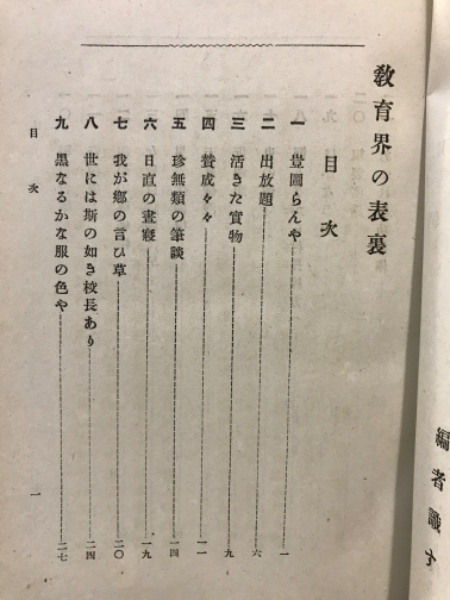 編者識す
教育界の表裏
目次
一 豈圖らんや 一
二 出放題 六
三 活きた實物 九
四 賛成々々 一一
五 珍無類の筆談 一四
六 日直の晝寢 一九
七 我が鄕の言ひ草 二〇
八 世には斯の如き校長あり 二四
九 黒なるかな服の色や 二七
目次 一